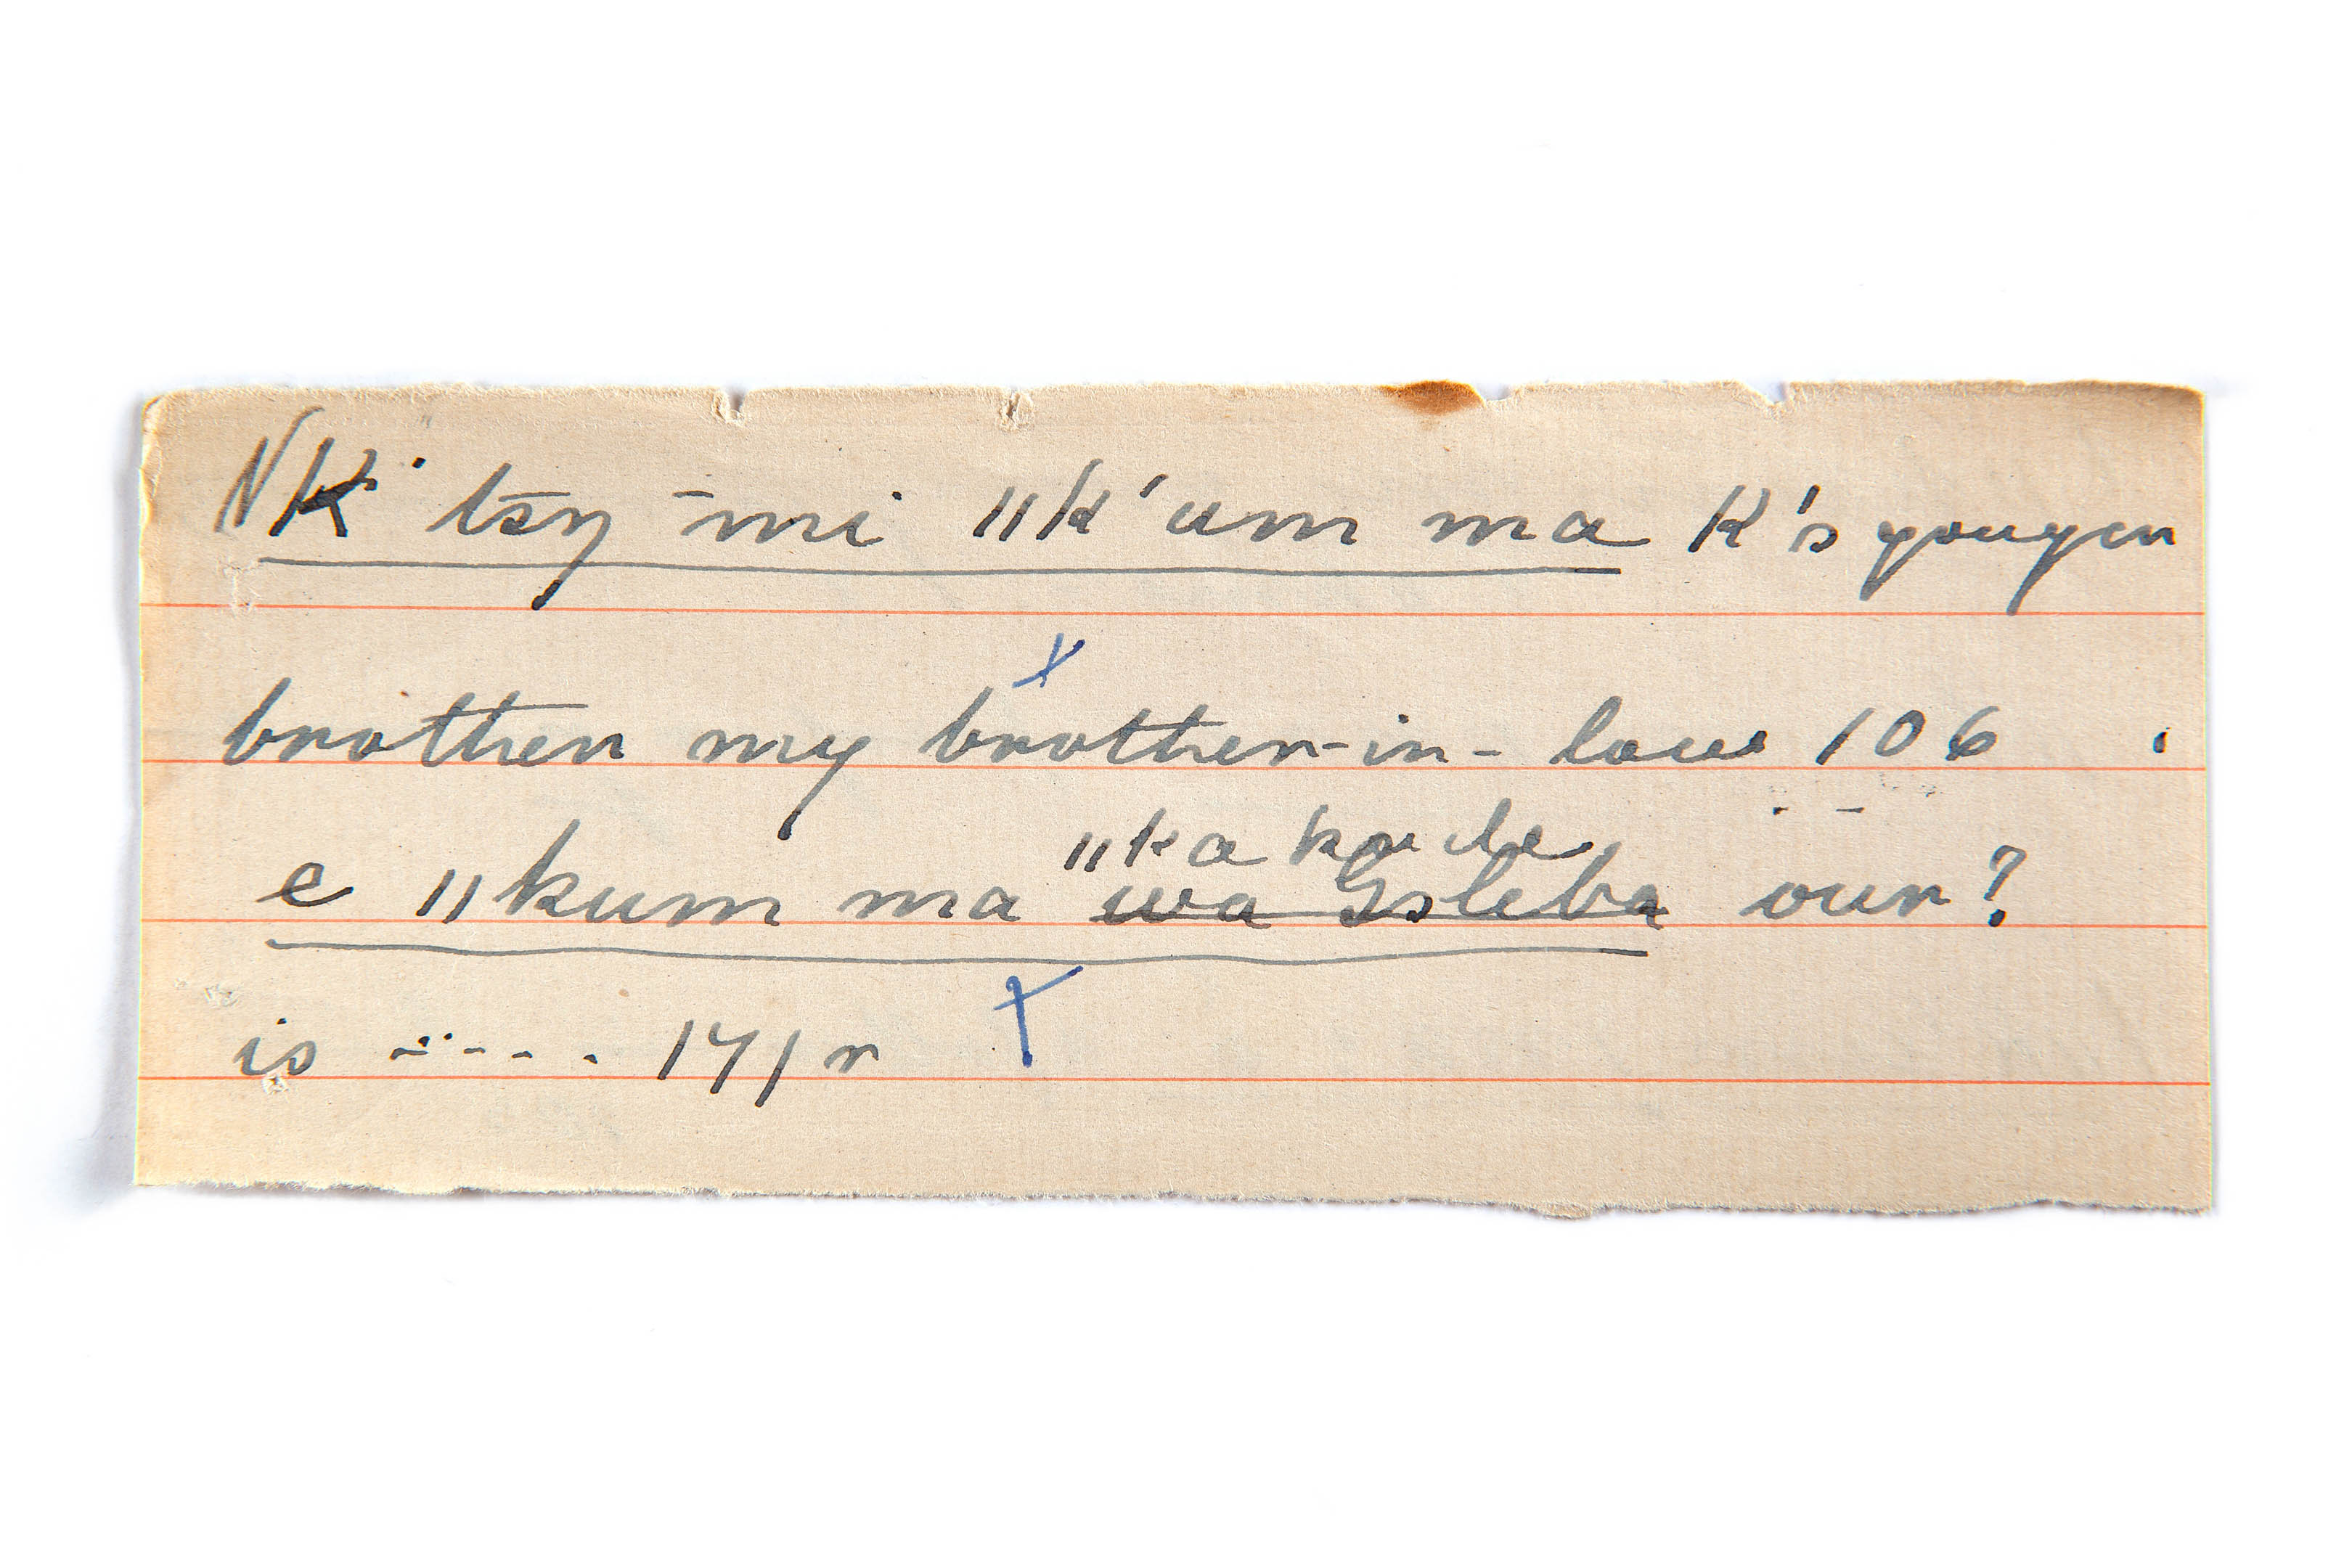 NK' tsy -mi "k'um ma K's yougen
brother my brother-in-law 106
"ka
e "kum ma wa Gsleba our?
is ----- 171 r